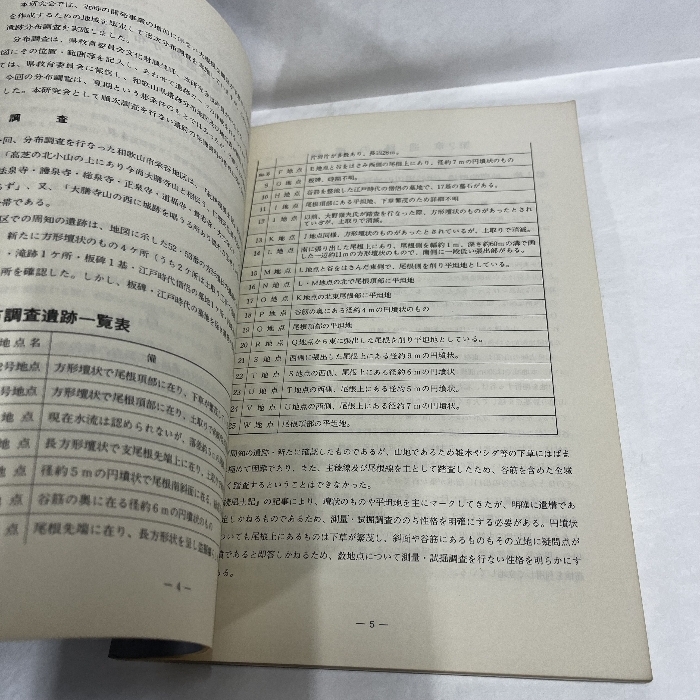 を作成するための地域を
遺跡分布調査を実施しました。
分布調査は、県教育委員会文化財
図にその位置・範囲等を記入し、あわせて遺跡の
ては、県教育委員会に
今回の分布調査は、夏期という悪条件の
した。本研究会として順次調査を行な
調 査
回、分布調査を行なった和歌山市
「高芝の北小山の上にあり今尚大膳寺山と
法泉寺・護泉寺・総泉寺・正泉寺・道福寺
らず」、又、「大膳寺山の西に城跡を唱る所あり
区での周知の遺跡は、地図に示した52・53
新たに方形壇状のもの4ヶ所(うち2ヶ所は
・滝跡1ヶ所・板碑1基・江戸時代僧侶の墓地
所を確認した。しかし、板碑・江戸時代の墓地を
調査遺跡一覧表
地点名 備
2号地点 方形壇状で尾根頂部に在り、下草が
号地点 方形壇状で尾根頂部に在り、土取り
地点 現在水流は認められないが、落差約
地点 長方形壇状で支尾根先端上に在り、
地点 径約5mの円墳状で尾根南斜面に在る。
地点 谷筋の奥に在る径約6mの円墳状のもの
点 尾根先端に在り、長方形状を呈し
— 4 —
F地点
9 G地点 板碑、時期不明。
10 H地点 谷筋を整流した江戸時代の僧侶の墓地で、17基の墓石がある。
11 I地点 尾根頂部にある平坦地、下草繁茂のため詳細不明
12 J地点 以前、大野嶺夫氏が踏査を行なった際、方形壇状のものがあったとされているが、土取りで消滅。
13 K地点 J地点同様、方形壇状のものがあったとされているが、土取りで消滅。
14 L地点 南に張り出した尾根上にあり、尾根側を幅約1m、深さ約60㎝の溝で画した一辺約11mの方形壇状のもので、南側に一段低い張出部がある。
15 M地点 L地点と谷をはさんだ東側で、尾根側を削り平坦地としている。
16 N地点 L・M地点の北で尾根頂部に平坦地
17 O地点 K地点の北東尾根部に平坦地
18 P地点 谷筋の奥にある径約4mの円墳状のもの
19 Q地点 尾根頂部の平坦地
20 R地点 Q地点から東に張出した尾根を削り平坦地としている。
21 S地点 西側に張出した尾根上にある径約9mの円墳状。
22 T地点 S地点の西側、尾根上にある径約5mの円墳状。
23 U地点 T地点の西側、尾根上にある径約5mの円墳状。
24 V地点 U地点の西側、尾根上にある径約7mの円墳状。
25 W地点 尾根頂部の平坦地。
周知の遺跡・新たに確認したものであるが、山地であるため雑木やシダ等の下草にはばま
極めて困難であり、また、主稜線及び尾根線を主として踏査したため、谷筋を含めた全域
く踏査するということはできなかった。
続風土記」の記事により、壇状のものや平坦地を主にマークしてきたが、明確に遺構であ
定しかねるものであるため、測量・試掘調査ののち性格を明確にする必要がある。円墳状
いても尾根上にあるものは下草が繁茂し、斜面や谷筋にあるものもその立地に疑問点が
墳であると即答しかねるため、数地点について測量・試掘調査を行ない性格を明らかにす
ある。
— 5 —